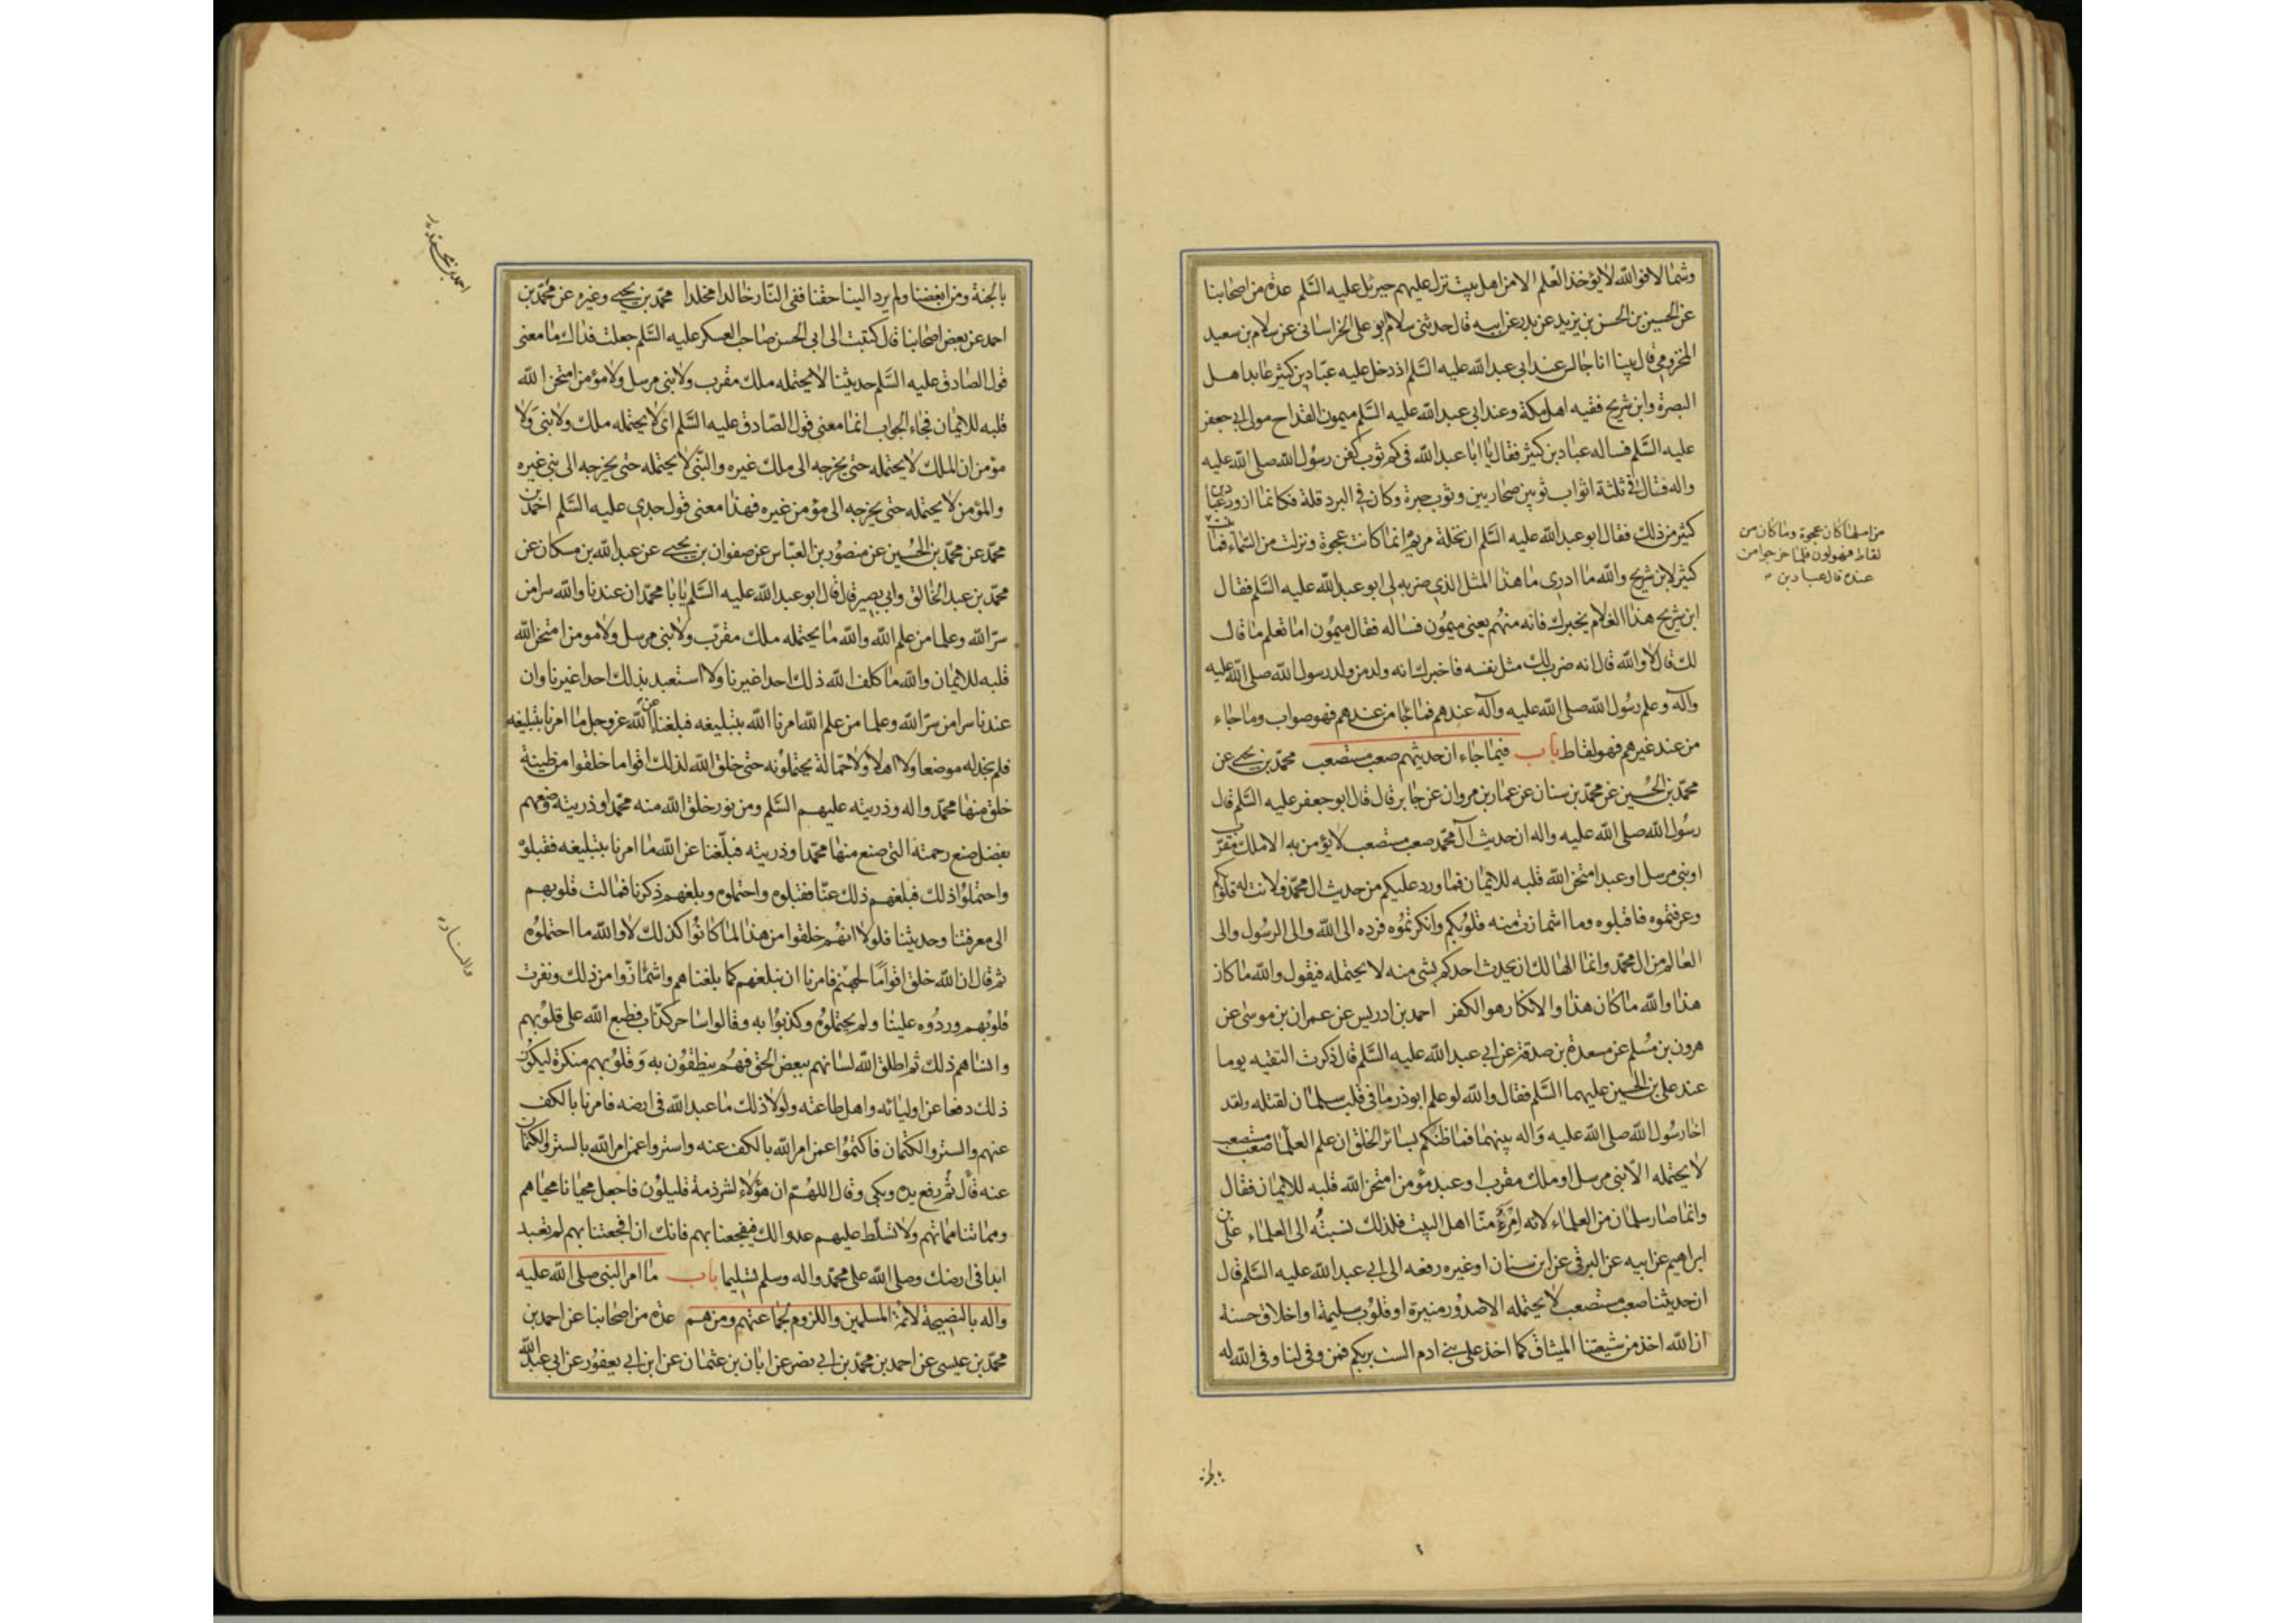 وشمالا فوالله لا يؤخذ العلم الا من اهل بيت نزل عليهم جبرئيل عليه السلم عدة من اصحابنا
عن الحسين بن الحسن بن يزيد عن بدر عن ابيه قال حدثني سلام ابو علي الخراساني عن سلام بن سعيد
المخزومي قال بينا انا جالس عند ابي عبد الله عليه السلم اذ دخل عليه عباد بن كثير عابد اهل
البصرة وابن شريح فقيه اهل مكة وعند ابي عبد الله عليه السلم ميمون القداح مولى ابي جعفر
عليه السلم فساله عباد بن كثير فقال يا ابا عبد الله في كم ثوب كفن رسول الله صلى الله عليه
واله فقال في ثلثة اثواب ثوبين صحاريين وثوب حبرة وكان في البرد قلة فكانما ازور عباد بن
كثير من ذلك فقال ابو عبد الله عليه السلم ان نخلة مريم انما كانت عجوة ونزلت من السماء فما نبت
من اصلها كان عجوة وما كان من
لقاط فهو لون فلما خرجوا من
عنده قال عباد بن
كثير لابن شريح والله ما ادري ما هذا المثل الذي ضربه لي ابو عبد الله عليه السلم فقال
ابن شريح هذا الغلام يخبرك فانه منهم يعني ميمون فساله فقال ميمون اما تعلم ما قال
لك قال لا والله قال انه ضرب لك مثل نفسه فاخبرك انه ولد من ولد رسول الله صلى الله عليه
وآله وعلم رسول الله صلى الله عليه وآله عندهم فما جا من عندهم فهو صواب وما جاء
من عند غيرهم فهو لقاط باب فيما جاء ان حديثهم صعب مستصعب محمد بن يحيى عن
محمد بن الحسين عن محمد بن سنان عن عمار بن مروان عن جابر قال قال ابو جعفر عليه السلم قال
رسول الله صلى الله عليه واله ان حديث آل محمد صعب مستصعب لا يؤمن به الا ملك مقرب
او نبي مرسل او عبد امتحن الله قلبه للايمان فما ورد عليكم من حديث ال محمد فلانت له قلوبكم
وعرفتموه فاقبلوه وما اشمازت منه قلوبكم وانكرتموه فردوه الى الله والى الرسول والى
العالم من ال محمد وانما الهالك ان يحدث احدكم بشي منه لا يحتمله فيقول والله ما كان
هذا والله ما كان هذا والانكار هو الكفر احمد بن ادريس عن عمران بن موسى عن
هرون بن مسلم عن مسعدة بن صدقة عن ابي عبد الله عليه السلم قال ذكرت التقيه يوما
عند علي بن الحسين عليهما السلم فقال والله لو علم ابوذر ما في قلب سلمان لقتله ولقد
اخا رسول الله صلى الله عليه واله بينهما فما ظنكم بسائر الخلق ان علم العلما صعب مستصعب
لا يحتمله الا نبي مرسل او ملك مقرب او عبد مؤمن امتحن الله قلبه للايمان فقال
وانما صار سلمان من العلماء لانه امرؤ منا اهل البيت فلذلك نسبته الى العلماء علي بن
ابراهيم عن ابيه عن البرقي عن ابن سنان او غيره رفعه الى ابي عبد الله عليه السلم قال
ان حديثنا صعب مستصعب لا يحتمله الا صدور منيرة او قلوب سليمة او اخلاق حسنة
ان الله اخذ من شيعتنا الميثاق كما اخذ على بني ادم الست بربكم فمن وفى لنا وفى الله له
بالجنة
بالجنة ومن ابغضنا ولم يرد الينا حقنا ففي النار خالدا مخلدا محمد بن يحيى وغيره عن محمد بن
احمد عن بعض اصحابنا قال كتبت الى ابي الحسن صاحب العسكر عليه السلم جعلت فداك ما معنى
قول الصادق عليه السلم حديثنا لا يحتمله ملك مقرب ولا نبي مرسل ولا مؤمن امتحن الله
قلبه للايمان فجاء الجواب انما معنى قول الصادق عليه السلم اى لا يحتمله ملك ولا نبي ولا
مؤمن ان الملك لا يحتمله حتى يخرجه الى ملك غيره والنبي لا يحتمله حتى يخرجه الى نبي غيره
والمؤمن لا يحتمله حتى يخرجه الى مؤمن غيره فهذا معنى قول جدي عليه السلم احمد بن
محمد عن محمد بن الحسين عن منصور بن العباس عن صفوان بن يحيى عن عبد الله بن مسكان عن
محمد بن عبد الخالق وابي بصير قال قال ابو عبد الله عليه السلم يا با محمد ان عندنا والله سرا من
سر الله وعلما من علم الله والله ما يحتمله ملك مقرب ولا نبي مرسل ولا مومن امتحن الله
قلبه للايمان والله ما كلف الله ذلك احدا غيرنا ولا استعبد بذلك احدا غيرنا وان
عندنا سرا من سر الله وعلما من علم الله امرنا الله بتبليغه فبلغنا عن الله عز وجل ما امرنا بتبليغه
فلم نجد له موضعا ولا اهلا ولا حمالة يحتملونه حتى خلق الله لذلك اقواما خلقوا من طينة
خلق منها محمد واله وذريته عليهم السلم ومن نور خلق الله منه محمدا وذريته وصنعهم
بفضل صنع رحمته التي صنع منها محمدا وذريته فبلغنا عن الله ما امرنا بتبليغه فقبلوه
واحتملوا ذلك فبلغهم ذلك عنا فقبلوه واحتملوه وبلغهم ذكرنا فمالت قلوبهم
الى معرفتنا وحديثنا فلولا انهم خلقوا من هذا لما كانوا كذلك لا والله ما احتملوه
ثم قال ان الله خلق اقواما لجهنم فامرنا ان نبلغهم كما بلغناهم واشمازوا من ذلك ونفرت
والنار
قلوبهم وردوه علينا ولم يحتملوه وكذبوا به وقالوا ساحر كذاب فطبع الله على قلوبهم
وانساهم ذلك ثم اطلق الله لسانهم ببعض الحق فهم ينطقون به وقلوبهم منكرة ليكون
ذلك دفعا عن اوليائه واهل طاعته ولولا ذلك ما عبد الله في ارضه فامرنا بالكف
عنهم والستر والكتمان فاكتموا عمن امر الله بالكف عنه واستروا عمن امر الله بالستر والكتمان
عنه قال ثم رفع يده وبكى وقال اللهم ان هؤلاء لشرذمة قليلون فاجعل محيانا محياهم
ومماتنا مماتهم ولا تسلط عليهم عدوا لك فيفجعنا بهم فانك ان افجعتنا بهم لم تعبد
ابدا في ارضك وصلى الله على محمد واله وسلم تسليما باب ما امر النبي صلى الله عليه
واله بالنصيحة لائمة المسلمين واللزوم لجماعتهم ومن هم عدة من اصحابنا عن احمد بن
محمد بن عيسى عن احمد بن محمد بن ابي نصر عن ابان بن عثمان عن ابن ابي يعفور عن ابي عبد الله